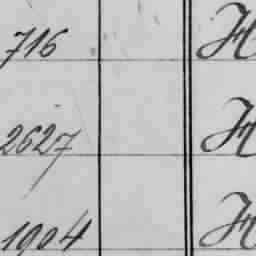 716 H
2627 H
1904 H